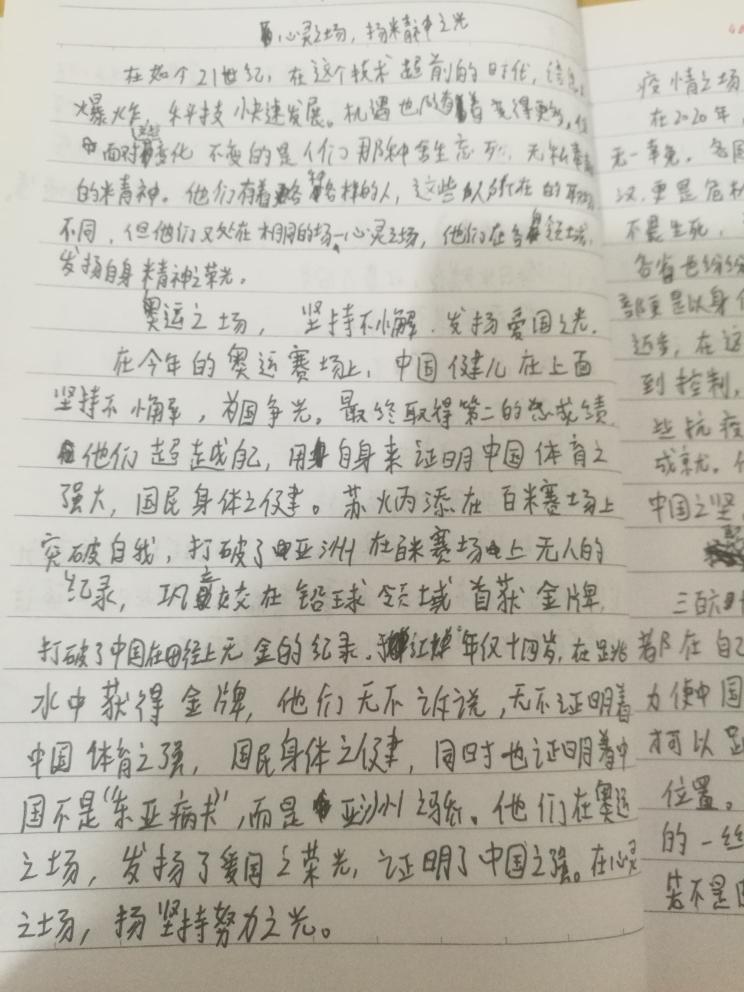 心灵之场，扬精神之光
在如今21世纪，在这个技术超前的时代，信息
爆炸，科技快速发展。机遇也随着变得更多，但
面对变化 不变的是人们那种舍生忘死，无私奉献
的精神。他们有着各种各样的人，这些人所在的
不同，但他们又处在相同的场—心灵之场，他们在各领域，
发扬自身精神之荣光。
奥运之场，坚持不懈，发扬爱国之光。
在今年的奥运赛场上，中国健儿在上面
坚持不懈，为国争光。最终取得第二的总成绩
他们超越自己，用自身来证明中国体育之
强大，国民身体之健。苏炳添在百米赛场上
突破自我，打破了亚洲在百米赛场上无人的
纪录，巩立姣在铅球领域首获金牌，
打破了中国在田径上无金的纪录。年仅十四岁，在跳
水中获得金牌，他们无不诉说，无不证明着
中国体育之强，国民身体之健，同时也证明着中
国不是“东亚病夫”，而是亚洲之骄。他们在奥运
之场，发扬了爱国之荣光，证明了中国之强。在心灵
之场，扬坚持努力之光。
疫情之场
在2020年，
无一幸免。各国
汉，更是危机
不畏生死，
各省也纷纷
部更是以身
近乎，在这
到控制，
些抗疫
成就。
中国之坚，
三百六十
都在自己
力使中国
才可以
位置。
的一丝
若不是